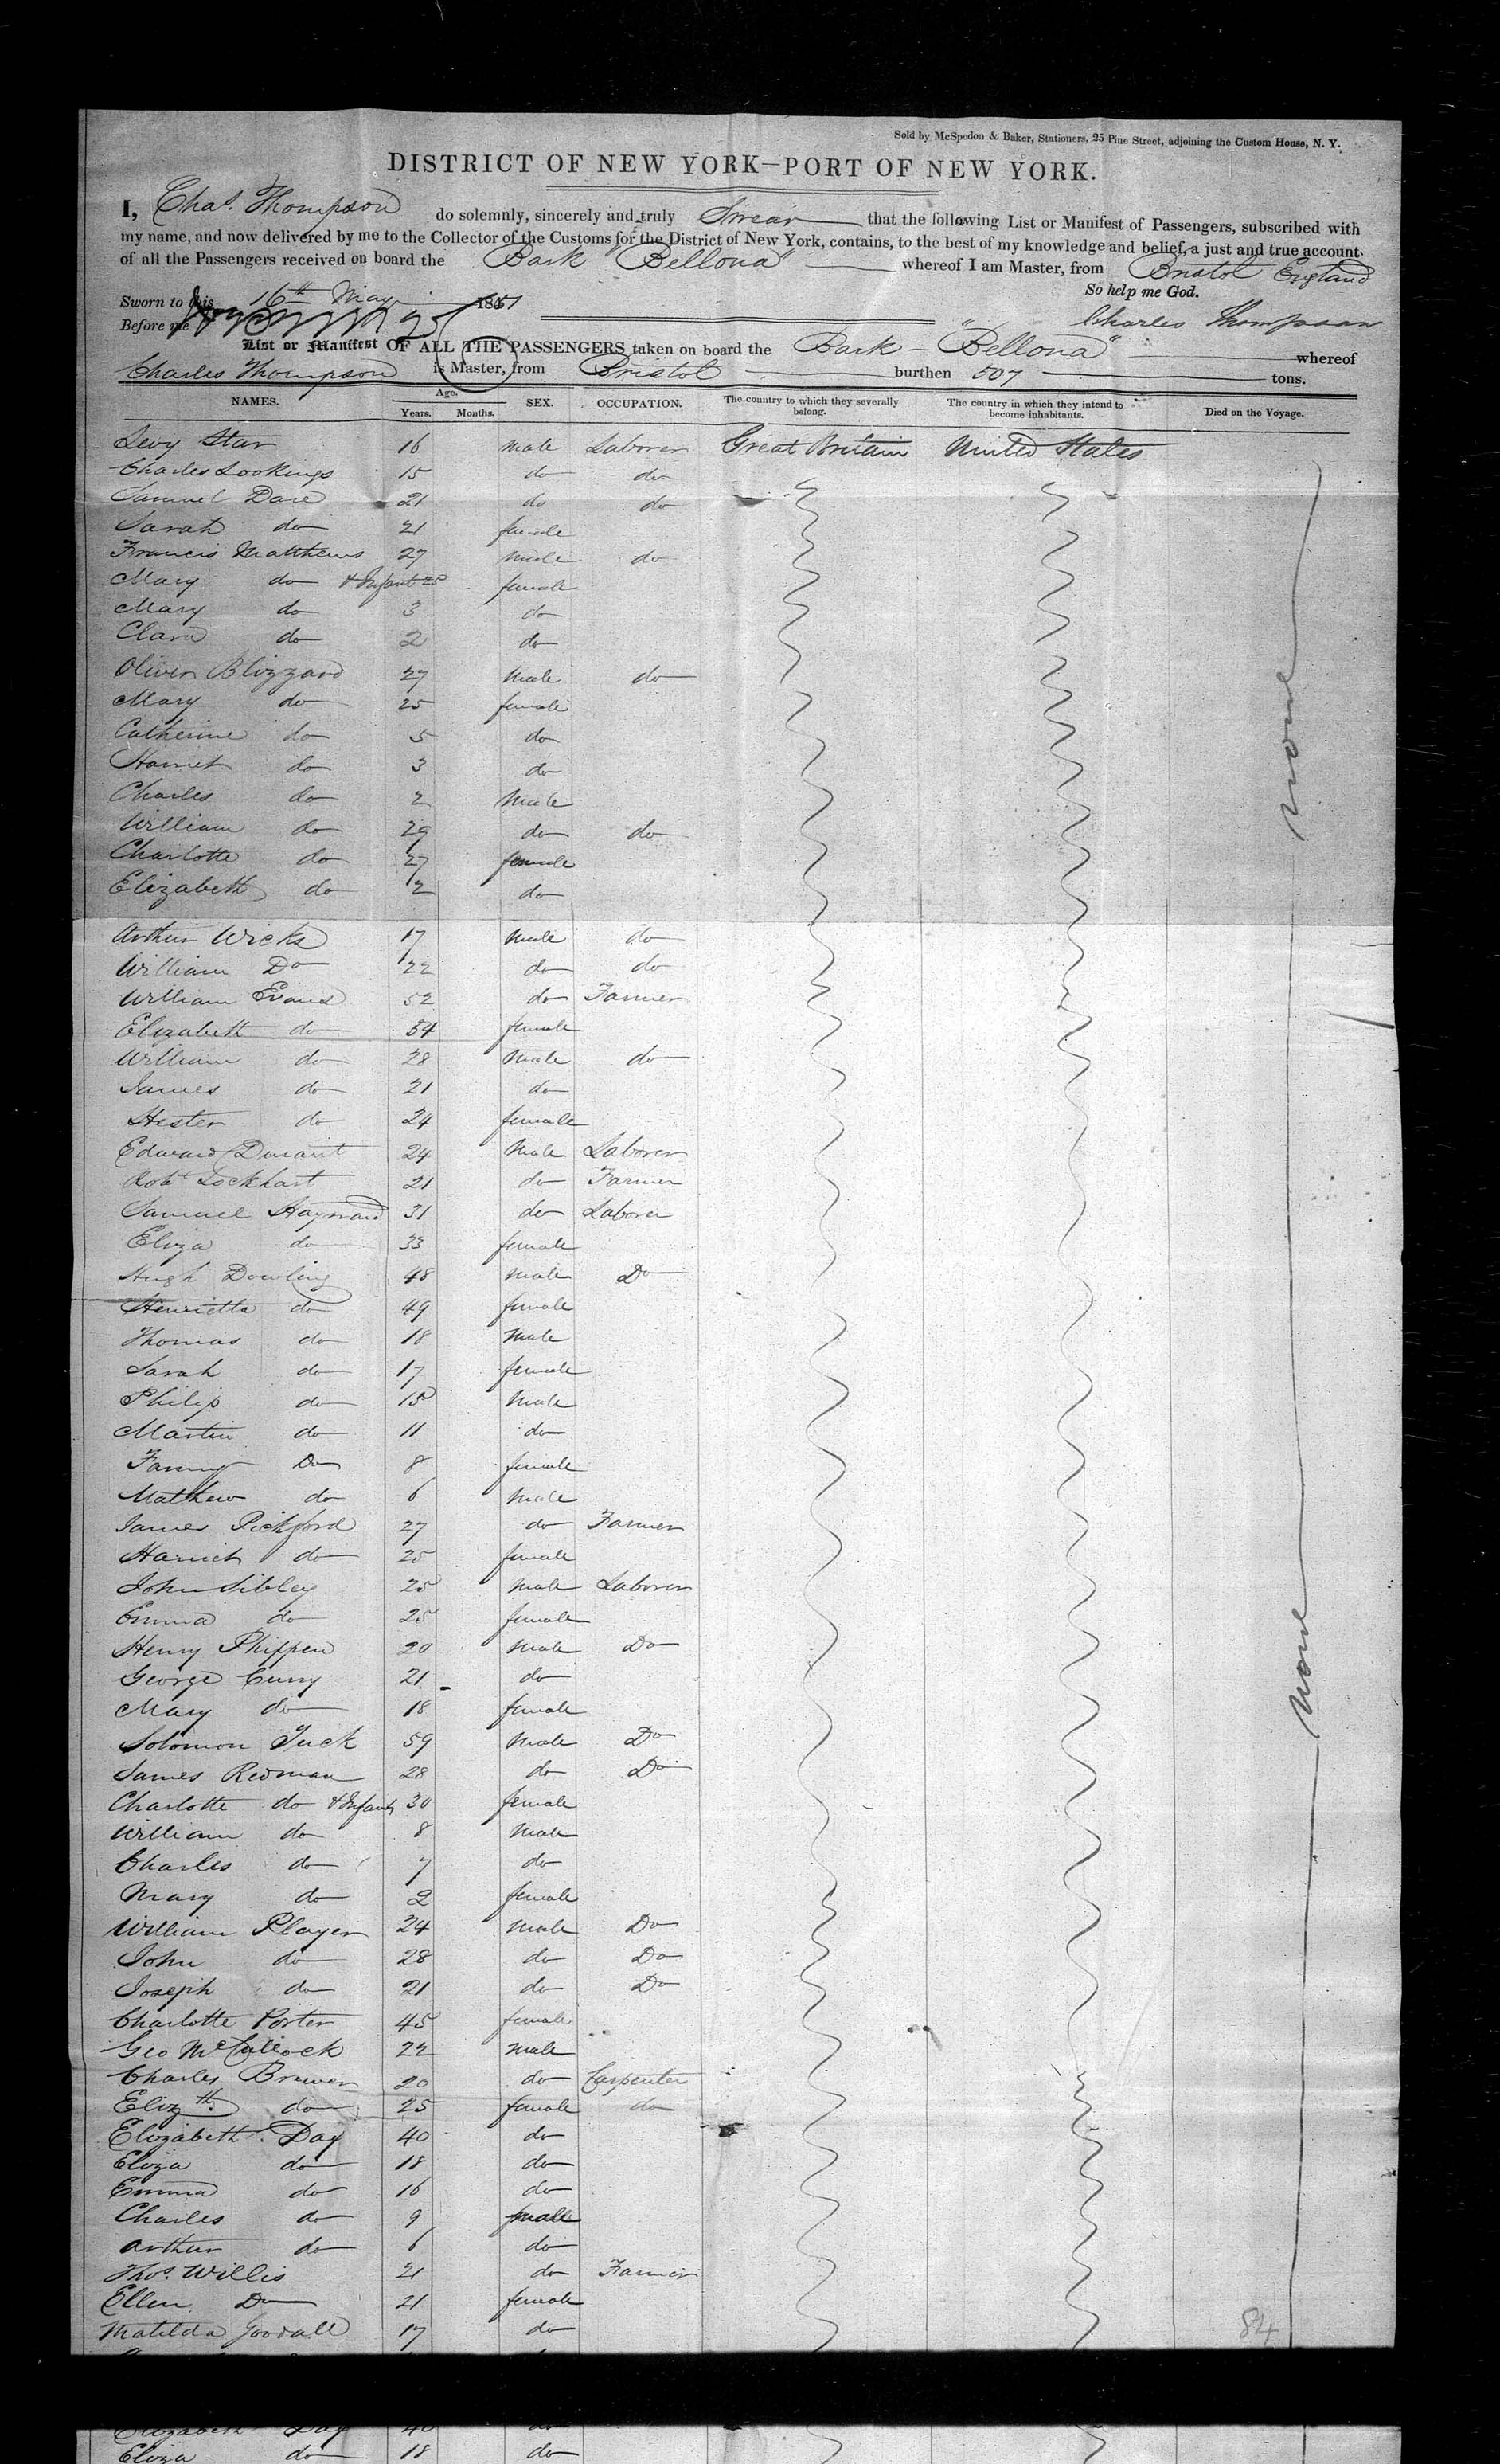 Sold by McSpedon & Baker, Stationers, 25 Pine Street, adjoining the Custom House, N. Y.
DISTRICT OF NEW YORK—PORT OF NEW YORK.
I, Chas. Thompson do solemnly, sincerely and truly Swear that the following List or Manifest of Passengers, subscribed with
my name, and now delivered by me to the Collector of the Customs for the District of New York, contains, to the best of my knowledge and belief, a just and true account
of all the Passengers received on board the Bark "Bellona" whereof I am Master, from Bristol England
So help me God.
Sworn to this 16th May 1851
Before me
Charles Thompson
List or Manifest OF ALL THE PASSENGERS taken on board the Bark - "Bellona" whereof
Charles Thompson is Master, from Bristol burthen 507 tons.
NAMES. Age. Years. Months. SEX. OCCUPATION. The country to which they severally belong. The country in which they intend to become inhabitants. Died on the Voyage.
Levy Star 16 male Laborer Great Britain United States
Charles Lookings 15 do do
Samuel Dare 21 do do
Sarah do 21 female
Francis Matthews 27 male do
Mary do & Infant 25 female
Mary do 3 do
Clara do 2 do
Oliver Blizzard 27 male do
Mary do 25 female
Catherine do 5 do
Harriet do 3 do
Charles do 2 male
William do 29 do do
Charlotte do 27 female
Elizabeth do 2 do
none
Arthur Wicks 17 male do
William Do 22 do do
William Evans 52 do Farmer
Elizabeth do 54 female
William do 28 male do
James do 21 do
Hester do 24 female
Edward Durant 24 male Laborer
Robt Lockhart 21 do Farmer
Samuel Hayward 31 do Laborer
Eliza do 33 female
Hugh Dowling 48 male Do
Henrietta do 49 female
Thomas do 18 male
Sarah do 17 female
Philip do 15 male
Martin do 11 do
Fanny Do 8 female
Mathew do 6 male
James Pickford 27 do Farmer
Harriet do 25 female
John Sibley 25 male Laborer
Emma do 25 female
Henry Phippen 20 male Do
George Curry 21 do
Mary do 18 female
none
Solomon Tuck 59 male Do
James Redman 28 do Do
Charlotte do & Infant 30 female
William do 8 male
Charles do 7 do
Mary do 2 female
William Player 24 male Do
John do 28 do Do
Joseph do 21 do Do
Charlotte Porter 45 female
Geo McCullock 22 male
Charles Brewer 20 do Carpenter
Elizth. do 25 female do
Elizabeth Day 40 do
Eliza do 18 do
Emma do 16 do
Charles do 9 male
Arthur do 6 do
Thos. Willis 21 do Farmer
Ellen Do 21 female
Matilda Goodall 17 do
84
Elizabeth Day 40 do
Eliza do 18 do